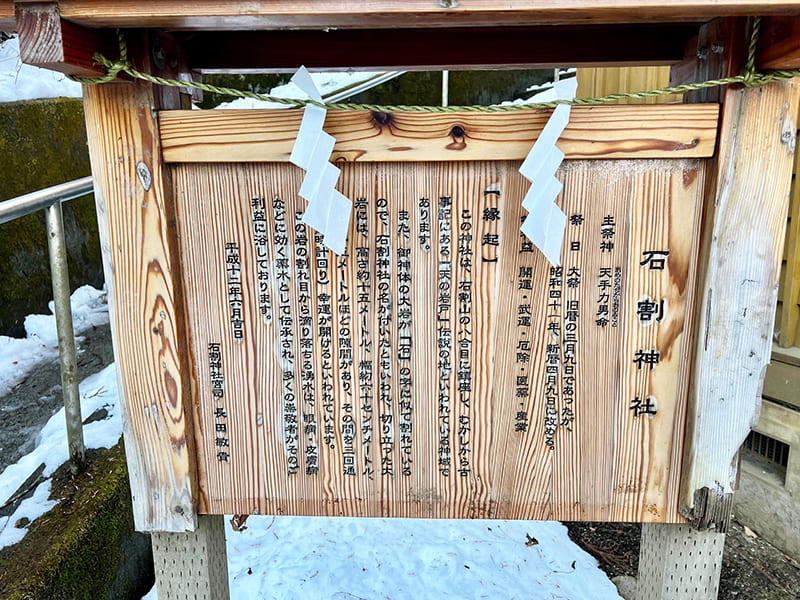 石割神社
主祭神　天手力男命
祭　日　大祭　旧暦の三月九日であったが、
昭和四十一年、新暦四月九日に改める。
益　開運・武運・厄除・医薬・産業
【縁起】
この神社は、石割山の八合目に鎮座し、むかしから古
事記にある「天の岩戸」伝説の地といわれている神域で
あります。
また、御神体の大岩が「石」の字に似て割れている
ので、石割神社の名が付いたともいわれ、切り立った大
岩には、高さ約十五メートル、幅約六十センチメートル、
メートルほどの隙間があり、その間を三回通
時計回り）幸運が開けるといわれています。
この岩の割れ目から滴り落ちる湧水は、眼病・皮膚病
などに効く霊水として伝承され、多くの崇敬者がそのご
利益に浴しております。
平成十二年六月吉日
石割神社宮司　長田